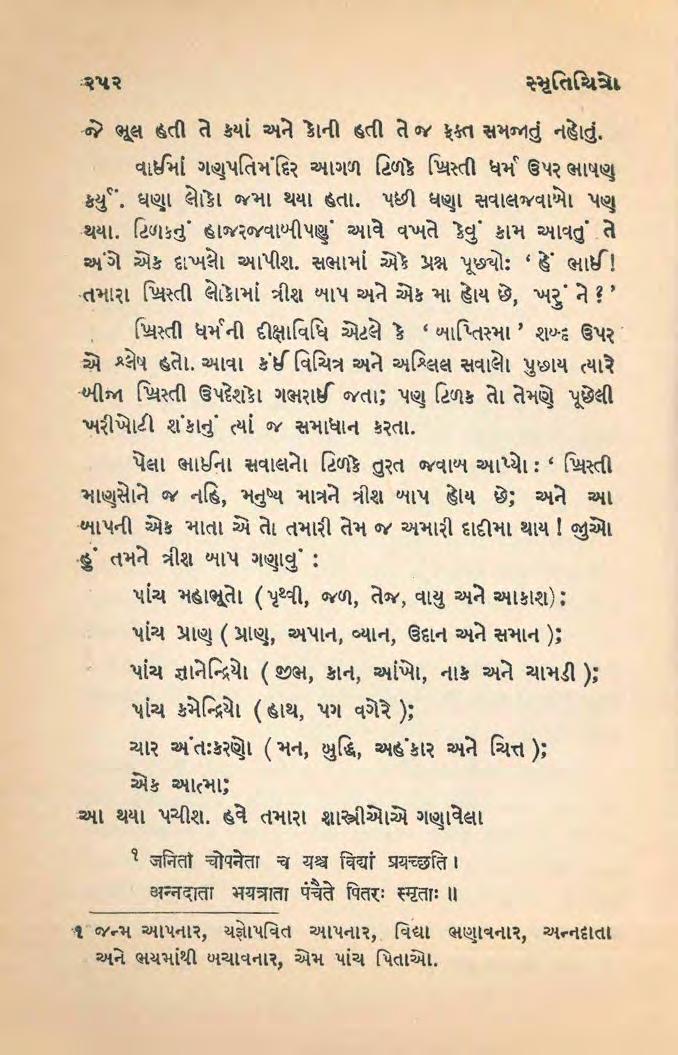 ૨૫૨ સ્મૃતિચિત્રો
જે ભૂલ હતી તે ક્યાં અને કોની હતી તે જ ફક્ત સમજાતું નહોતું.
વાઈમાં ગણપતિમંદિર આગળ ટિળકે ખ્રિસ્તી ધર્મ ઉપર ભાષણ
કર્યું. ઘણા લોકો જમા થયા હતા. પછી ઘણા સવાલજવાબો પણ
થયા. ટિળકનું હાજરજવાબીપણું આવે વખતે કેવું કામ આવતું તે
અંગે એક દાખલો આપીશ. સભામાં એકે પ્રશ્ન પૂછ્યો: ‘હેં ભાઈ!
તમારા ખ્રિસ્તી લોકોમાં ત્રીશ બાપ અને એક મા હોય છે, ખરું ને?’
ખ્રિસ્તી ધર્મની દીક્ષાવિધિ એટલે કે ‘બાપ્તિસ્મા’ શબ્દ ઉપર
એ શ્લેષ હતો. આવા કંઈ વિચિત્ર અને અશ્લિલ સવાલો પુછાય ત્યારે
બીજા ખ્રિસ્તી ઉપદેશકો ગભરાઈ જતા; પણ ટિળક તો તેમણે પૂછેલી
ખરીખોટી શંકાનું ત્યાં જ સમાધાન કરતા.
પેલા ભાઈના સવાલનો ટિળકે તુરત જવાબ આપ્યો: ‘ખ્રિસ્તી
માણસોને જ નહિ, મનુષ્ય માત્રને ત્રીશ બાપ હોય છે; અને આ
બાપની એક માતા એ તો તમારી તેમ જ અમારી દાદીમા થાય! જુઓ
હું તમને ત્રીશ બાપ ગણાવું:
પાંચ મહાભૂતો (પૃથ્વી, જળ, તેજ, વાયુ અને આકાશ);
પાંચ પ્રાણ (પ્રાણ, અપાન, વ્યાન, ઉદાન અને સમાન);
પાંચ જ્ઞાનેન્દ્રિયો (જીભ, કાન, આંખો, નાક અને ચામડી);
પાંચ કર્મેન્દ્રિયો (હાથ, પગ વગેરે);
ચાર અંતઃકરણો (મન, બુદ્ધિ, અહંકાર અને ચિત્ત);
એક આત્મા;
આ થયા પચીશ. હવે તમારા શાસ્ત્રીઓએ ગણાવેલા
૧ जनिता चोपनेता च यश्च विद्यां प्रयच्छति ।
अन्नदाता भयत्राता पंचैते पितरः स्मृताः ॥
૧ જન્મ આપનાર, યજ્ઞોપવિત આપનાર, વિદ્યા ભણાવનાર, અન્નદાતા
અને ભયમાંથી બચાવનાર, એમ પાંચ પિતાઓ.